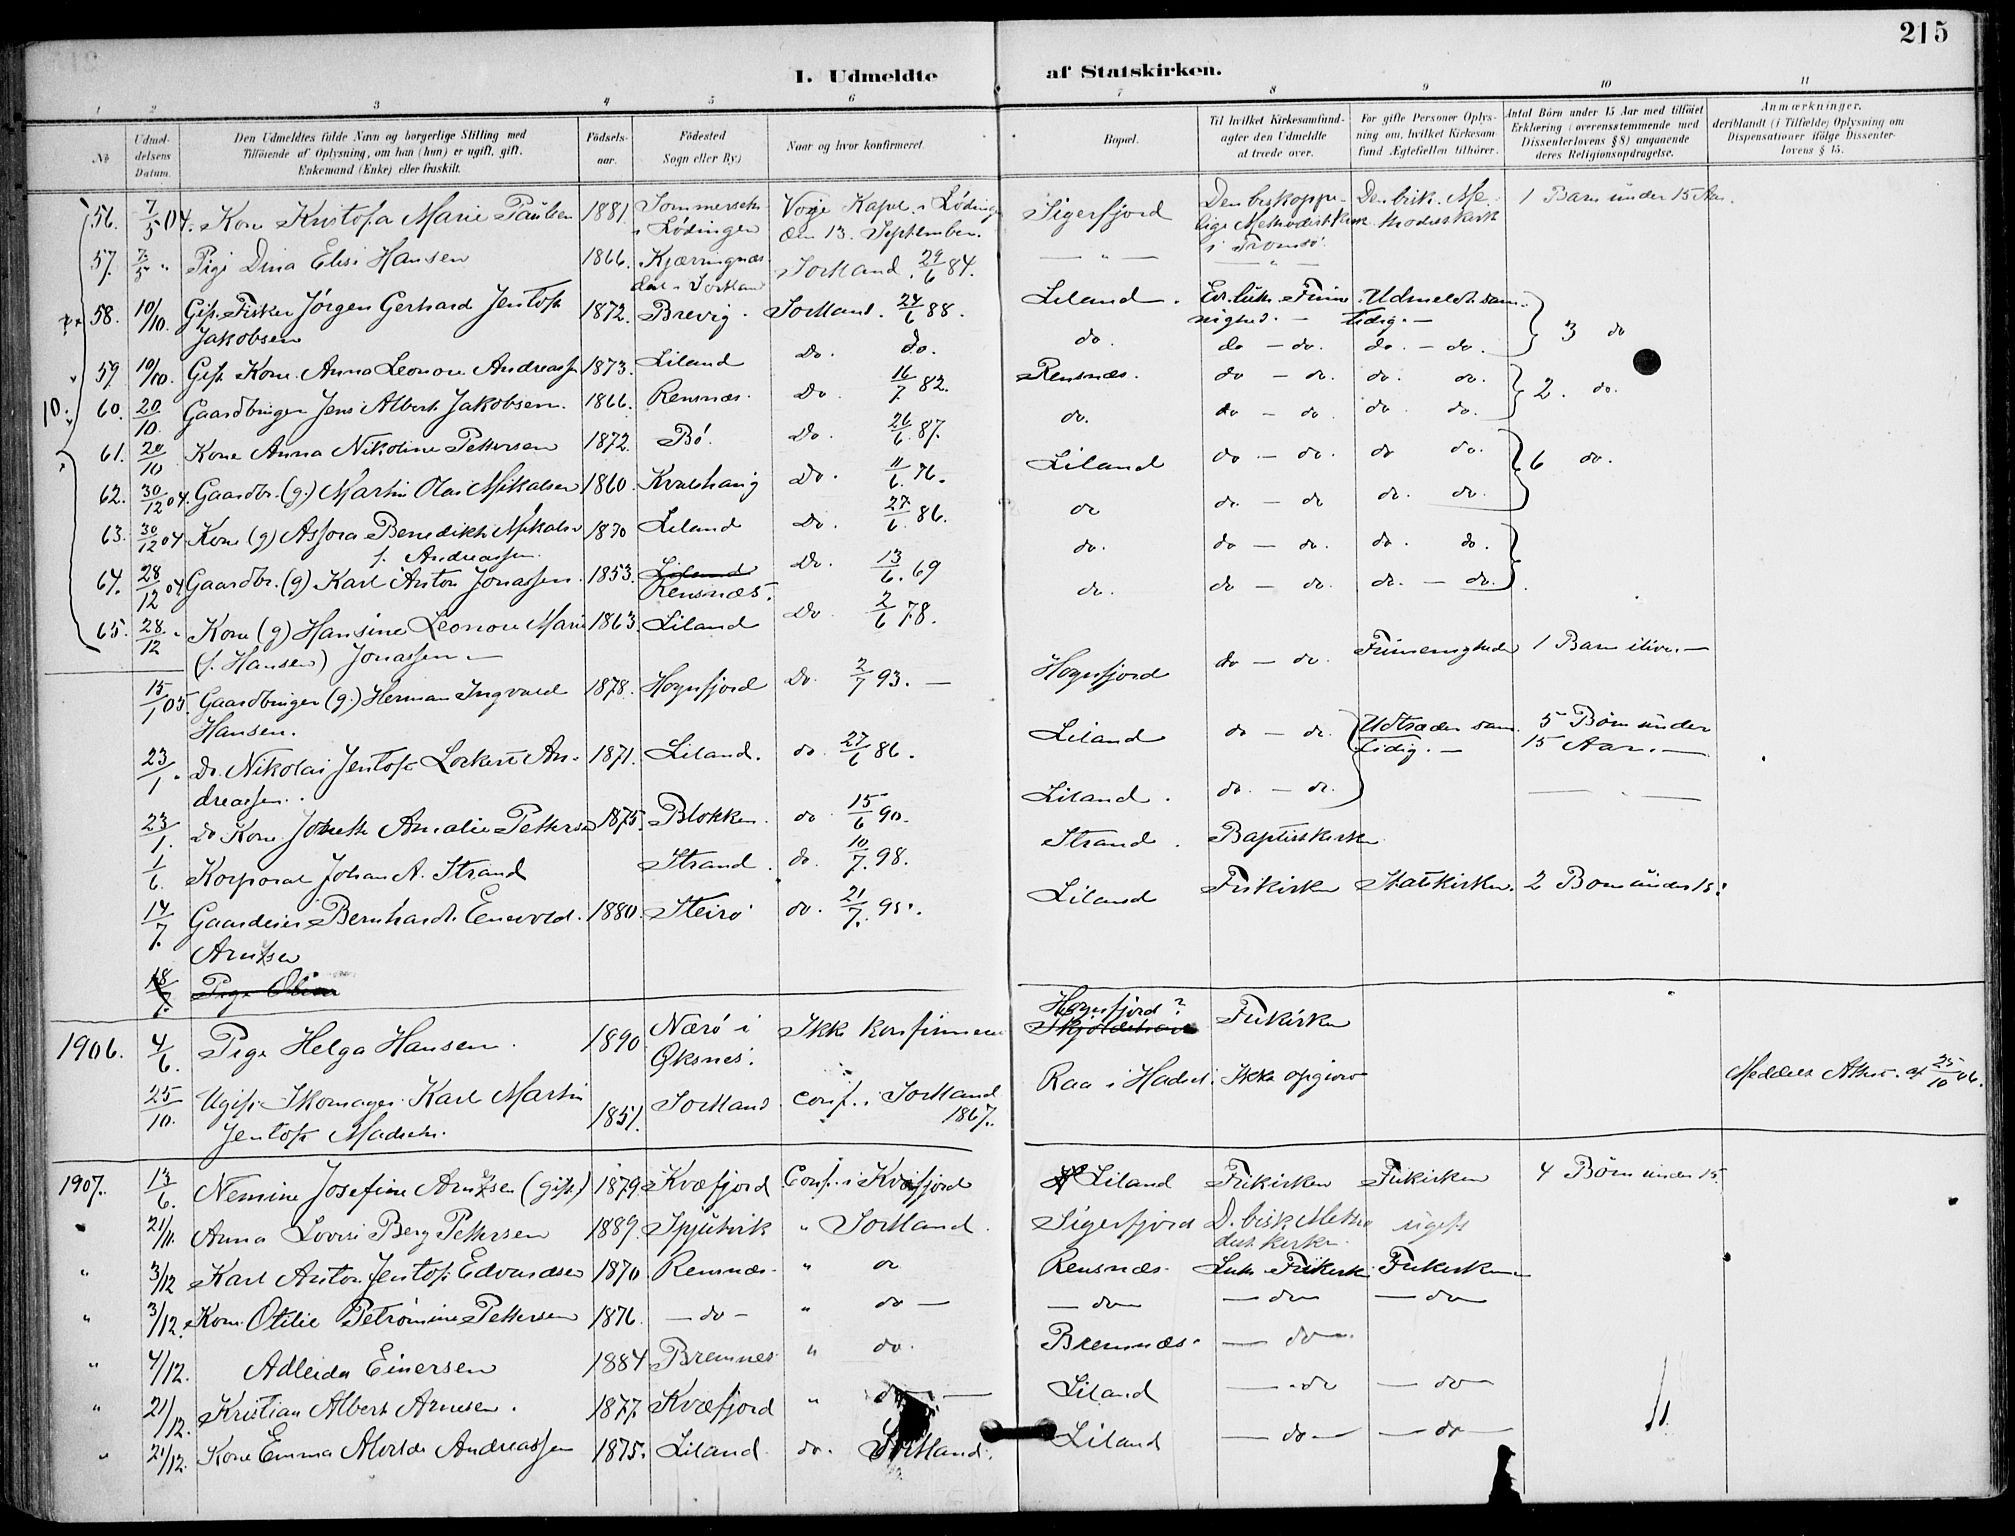 215
I. Udmeldte af Statskirken.
1 2 3 4 5 6 7 8 9 10 11
№
Udmel-
delsens
Datum.
Den Udmeldtes fulde Navn og borgerlige Stilling med
Tilføiende af Oplysning, om han (hun) er ugift, gift,
Enkemand (Enke) eller fraskilt.
Fødsels-
aar.
Fødested
Sogn eller By)
Naar og hvor konfirmeret.
Bopæl.
Til hvilket Kirkesamfund
agter den Udmeldte
at træde over.
For gifte Personer Oplys-
ning om, hvilket Kirkesam-
fund Ægtefællen tilhører.
Antal Børn under 15 Aar med tilføiet
Erklæring (overensstemmende med
Dissenterlovens § 8) angaaende
deres Religionsopdragelse.
Anmærkninger,
deriblandt (i Tilfælde) Oplysning om
Dispensationer ifølge Dissenter-
lovens § 15.
56. 7/5 04. Kone Kristofa Marie Paulsen 1881. Sommerseth i Lødingen Voje Kapel i Lødingen den 13. September. Sigerfjord Den biskoppe-lige Methodistkirke i Tromsø. Den bisk. Me-thodistkirk 1 Barn under 15 Aar.
57. 7/5 " Pige Dina Elise Hansen 1866. Kjærringnes-dal i Sortland Sortland. 29/6 84. — " — — " —
58. 10/10. Gift Fisker Jørgen Gerhard Jentoft Jakobsen 1872. Brevig. Sortland. 24/6 88. Liland. Ev. luth. Frime-nighed. — Udmeldt sam-tidig. — 3 do
59. 10/10. Gift Kone Anna Leonore Andreassen 1873. Liland do. do. do. do — do. do. — do.
60. 20/10. Gaardbruger Jens Albert Jakobsen. 1866. Rensnæs. Do. 16/7 82. Rensnæs. do — do. do. do. 2. do.
61. 20/10 Kone Anna Nikoline Pettersen 1872. Bø. Do. 26/6 87. do. do — do. do. do.
62. 30/12 04. Gaardbr. (g.) Martin Olai Mikalsen 1860. Kvalshaug Do. 11/6 76. Liland do — do. do do. 6 do.
63. 30/12 04 Kone (g) Assora Benedikte Mikalse f. Andreassen. 1870 Liland Do. 27/6 86. do do — do do. do.
64. 28/12 04 Gaardbr. (g) Karl Anton Jonassen. 1853. Liland Rensnæs. Do. 13/6. 69 do. do — do. do. do.
65. 28/12 " Kone (g) Hansine Leonore Marie (f. Hansen) Jonassen — 1863. Liland Do. 2/6 78. do. do — do. do. — do.
10.
15/1 05. Gaardbruger (g.) Herman Ingvald Hansen. 1878. Hognfjord Do. 2/7 93. — Hognfjord do — do. Frimenigheden 1 Barn ilive. —
23/1 " do. Nikolai Jentoft Lockert An-dreassen. 1871. Liland. do. 27/6 86. Liland do — do. Udtræder sam-tidig. — 5 Børn under 15 Aar. —
23/1. do Kone Amalie Pettersen 1875. Blokken. do. 15/6 90. Liland. do. — do.
1/6. Korporal Johan A. Strand Strand. do. 10/7. 98. Strand. Baptistkirken
14/7. Gaardeier Bernhardt Enevold. Arntzen 1880. Steirø do. 21/7. 95. Liland Frikirken Statskirken. 2 Born under 15.
18/7. Pige
1906. 4/6. Pige Helga Hansen. 1890 Nærø i Øksnes. Ikke konfirmeret Hognfjord? Frikirken
25/10. Ugift Skomager Karl Martin Jentoft Madsen. 1851. Sortland conf. i Sortland 1867. Raa i Hadsel. Ikke opgivet Meddelt Attest. af 25/10 06.
1907. 13/6. Nemine Josefine Arntzen (gift) 1879. Kvæfjord Conf. i Kvæfjord Liland Frikirken Frikirken 4 Børn under 15.
" 21/11. Anna Lovise Berg Pettersen 1889. Spjutvik " Sortland. Sigerfjord D. bisk. Metho dist kirke. ugift
" 3/12 Karl Anton Jentoft Edvardsen 1870. Rensnæs " do Rensnæs. Luth. Frikirk Frikirken
" 3/12. Kone Otilie Petromine Pettersen 1876. — do — " do — — do — — do — — do —
" 4/12. Adleida Einersen 1884 Bremnes " do. Bremnæs. — do —
" 21/12. Kristian Albert Arnesen. 1877. Kvæfjord " do — Liland — do — do —
" 21/12. Kone Emma Alvilde Andreassen 1875. Liland do. Sortland. Liland — do — — do —